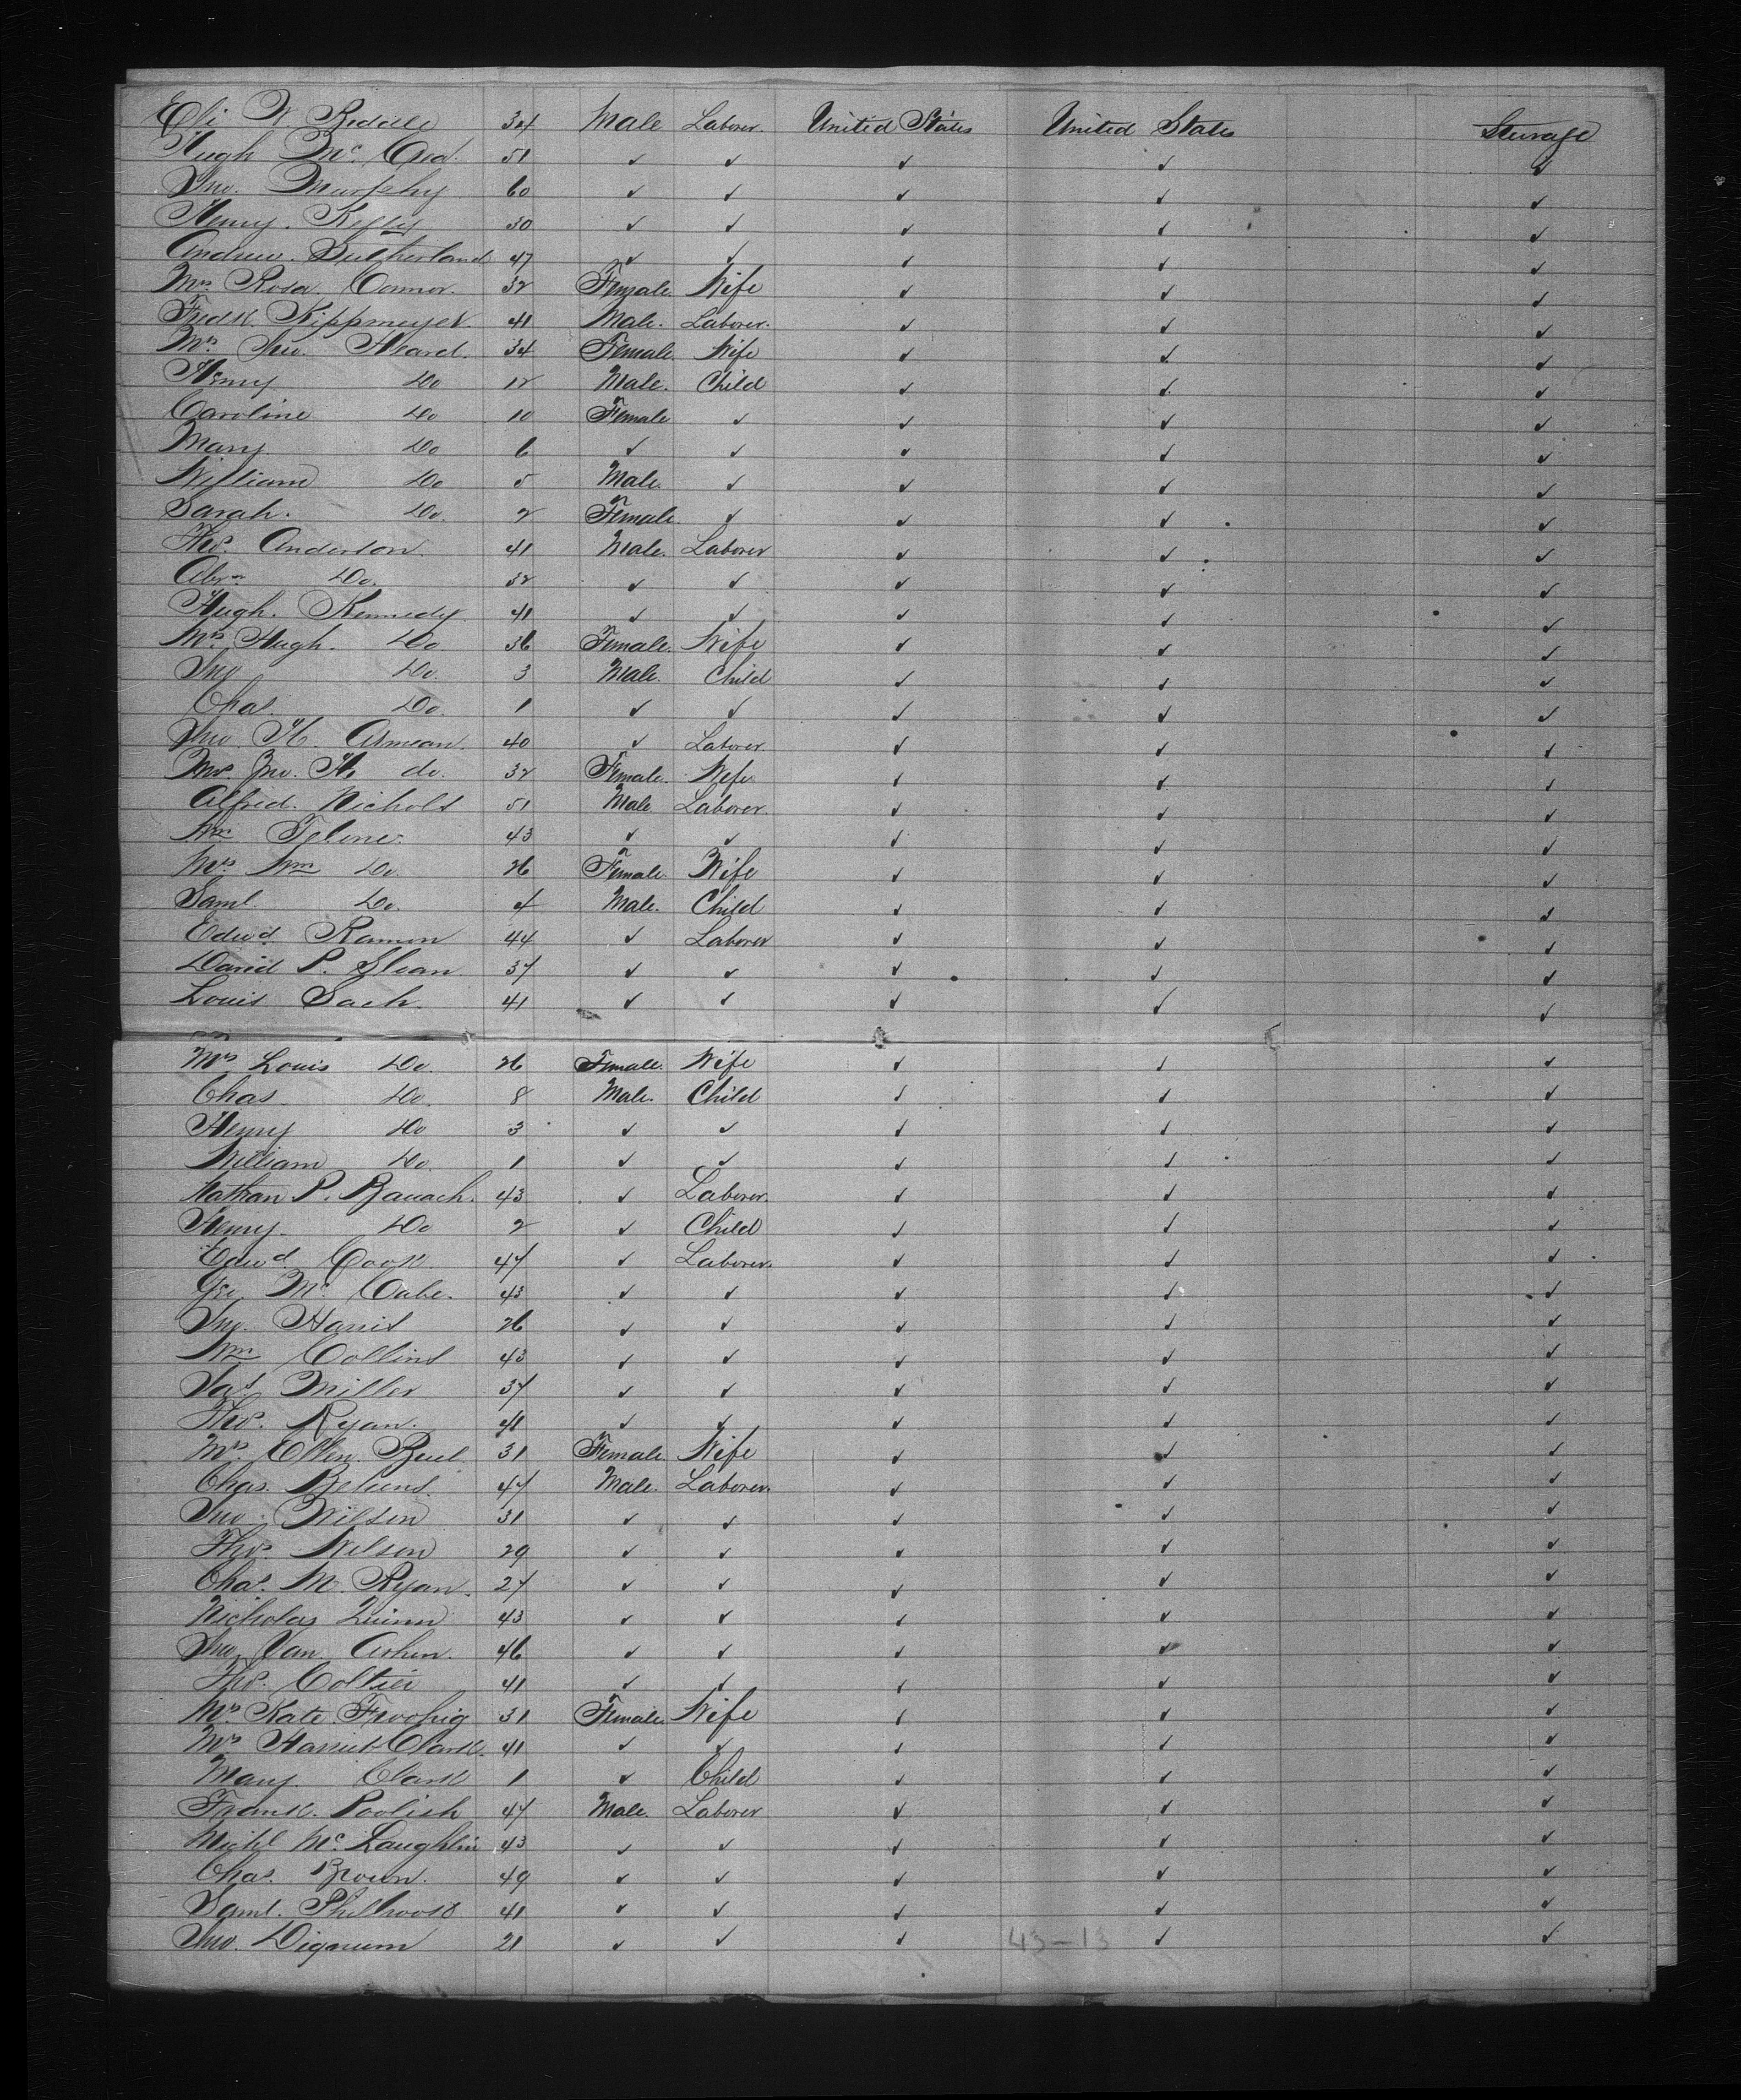 Eli W Riddle 34 Male Laborer. United States United States Steerage
Hugh Mc Ord. 51 ✓ ✓ ✓ ✓ ✓
Jno. Murphy 60 ✓ ✓ ✓ ✓ ✓
Henry. 30 ✓ ✓ ✓ ✓ ✓
Andrew. Sutherland 47 ✓ ✓ ✓ ✓ ✓
Mrs Rosa Connor. 32 Female. Wife ✓ ✓ ✓
Fredk Kippmeyer. 41 Male. Laborer. ✓ ✓ ✓
Mrs Jno. Heard. 34 Female. Wife ✓ ✓ ✓
Henry Do 12 Male. Child ✓ ✓ ✓
Caroline Do 10 Female ✓ ✓ ✓ ✓
Mary Do 6 ✓ ✓ ✓ ✓ ✓
William Do 5 Male. ✓ ✓ ✓ ✓
Sarah. Do. 2 Female. ✓ ✓ ✓ ✓
Thos. Anderson. 41 Male. Laborer ✓ ✓ ✓
Abrm Do. 32 ✓ ✓ ✓ ✓ ✓
Hugh. Kennedy. 41 ✓ ✓ ✓ ✓ ✓
Mrs Hugh. Do 36 Female. Wife ✓ ✓ ✓
Jno Do. 3 Male. Child ✓ ✓ ✓
Chas. Do. 1 ✓ ✓ ✓ ✓ ✓
Jno. H. 40 ✓ Laborer. ✓ ✓ ✓
Mrs. Jno. H. do. 32 Female. Wife ✓ ✓ ✓
Alfred. Nichols 51 Male Laborer. ✓ ✓ ✓
Wm 43 ✓ ✓ ✓ ✓ ✓
Mrs Wm Do. 26 Female. Wife ✓ ✓ ✓
Saml. Do. 4 Male. Child ✓ ✓ ✓
Edwd Ramon 44 ✓ Laborer ✓ ✓ ✓
David P. Sloan 37 ✓ ✓ ✓ ✓ ✓
Louis Sach. 41 ✓ ✓ ✓ ✓ ✓
Mrs Louis Do. 26 Female. Wife ✓ ✓ ✓
Chas Do. 8 Male. Child ✓ ✓ ✓
Henry Do 3 ✓ ✓ ✓ ✓ ✓
William Do. 1 ✓ ✓ ✓ ✓ ✓
Nathan P. Bauach. 43 ✓ Laborer. ✓ ✓ ✓
Henry. Do 2 ✓ Child ✓ ✓ ✓
Edwd. Cook. 47 ✓ Laborer. ✓ ✓ ✓
Geo Mc Cabe. 43 ✓ ✓ ✓ ✓ ✓
Jno. Harris 26 ✓ ✓ ✓ ✓ ✓
Wm Collins 43 ✓ ✓ ✓ ✓ ✓
Jas Miller 37 ✓ ✓ ✓ ✓ ✓
Thos. Ryan. 41 ✓ ✓ ✓ ✓ ✓
Mrs. Ellen. Buel. 31 Female. Wife ✓ ✓ ✓
Chas. Behrens. 47 Male. Laborer. ✓ ✓ ✓
Jno. Wilson 31 ✓ ✓ ✓ ✓ ✓
Thos. Nelson 29 ✓ ✓ ✓ ✓ ✓
Chas. M. Ryan. 27 ✓ ✓ ✓ ✓ ✓
Nicholas Quinn 43 ✓ ✓ ✓ ✓ ✓
Jno. Van 46 ✓ ✓ ✓ ✓ ✓
Thos. Coltier 41 ✓ ✓ ✓ ✓ ✓
Mrs Kate 31 Female. Wife ✓ ✓ ✓
Mrs Harriet Clark. 41 ✓ ✓ ✓ ✓ ✓
Mary. Clark 1 ✓ Child ✓ ✓ ✓
Frank. Poolish 47 Male. Laborer ✓ ✓ ✓
Michl Mc Laughlin 43 ✓ ✓ ✓ ✓ ✓
Chas. Brown. 49 ✓ ✓ ✓ ✓ ✓
Saml. Philbrook 41 ✓ ✓ ✓ ✓ ✓
Jno. Dignum 21 ✓ ✓ ✓ 43-13 ✓ ✓